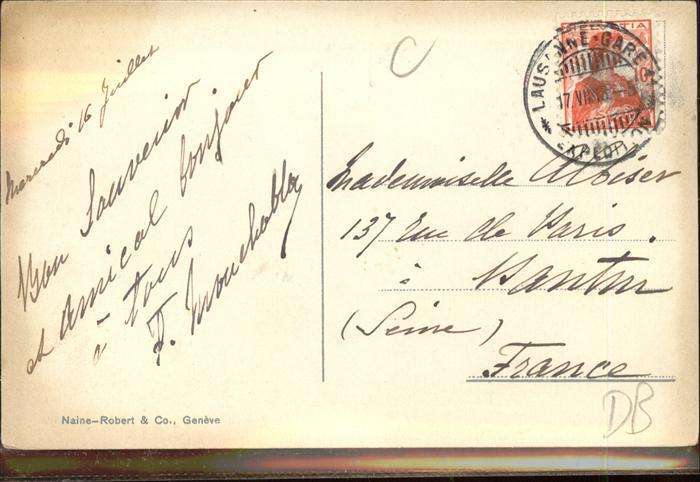 Mercredi 16 Juillet
Bon Souvenir
et amical bonjour
à tous
F.
Mademoiselle
137 rue de Paris.
à
(Seine)
France
LAUSANNE-GARE
17 VII
EXP. LETT.
Naine–Robert & Co., Genève
C
DB